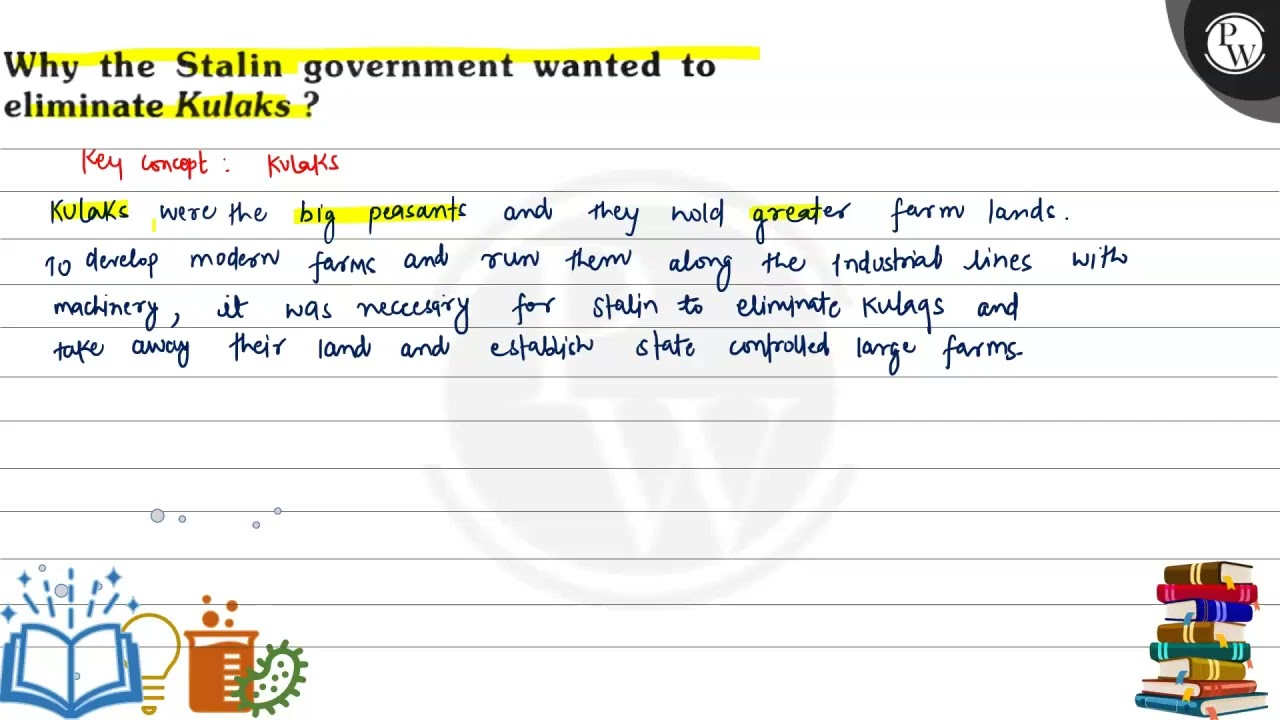 Why the Stalin government wanted to
eliminate Kulaks ?
Key concept : Kulaks
Kulaks were the big peasants and they hold greater farm lands.
To develop modern farms and run them along the industrial lines with
machinery, it was necessary for stalin to eliminate Kulaqs and
take away their land and establish state controlled large farms.
PW
PW